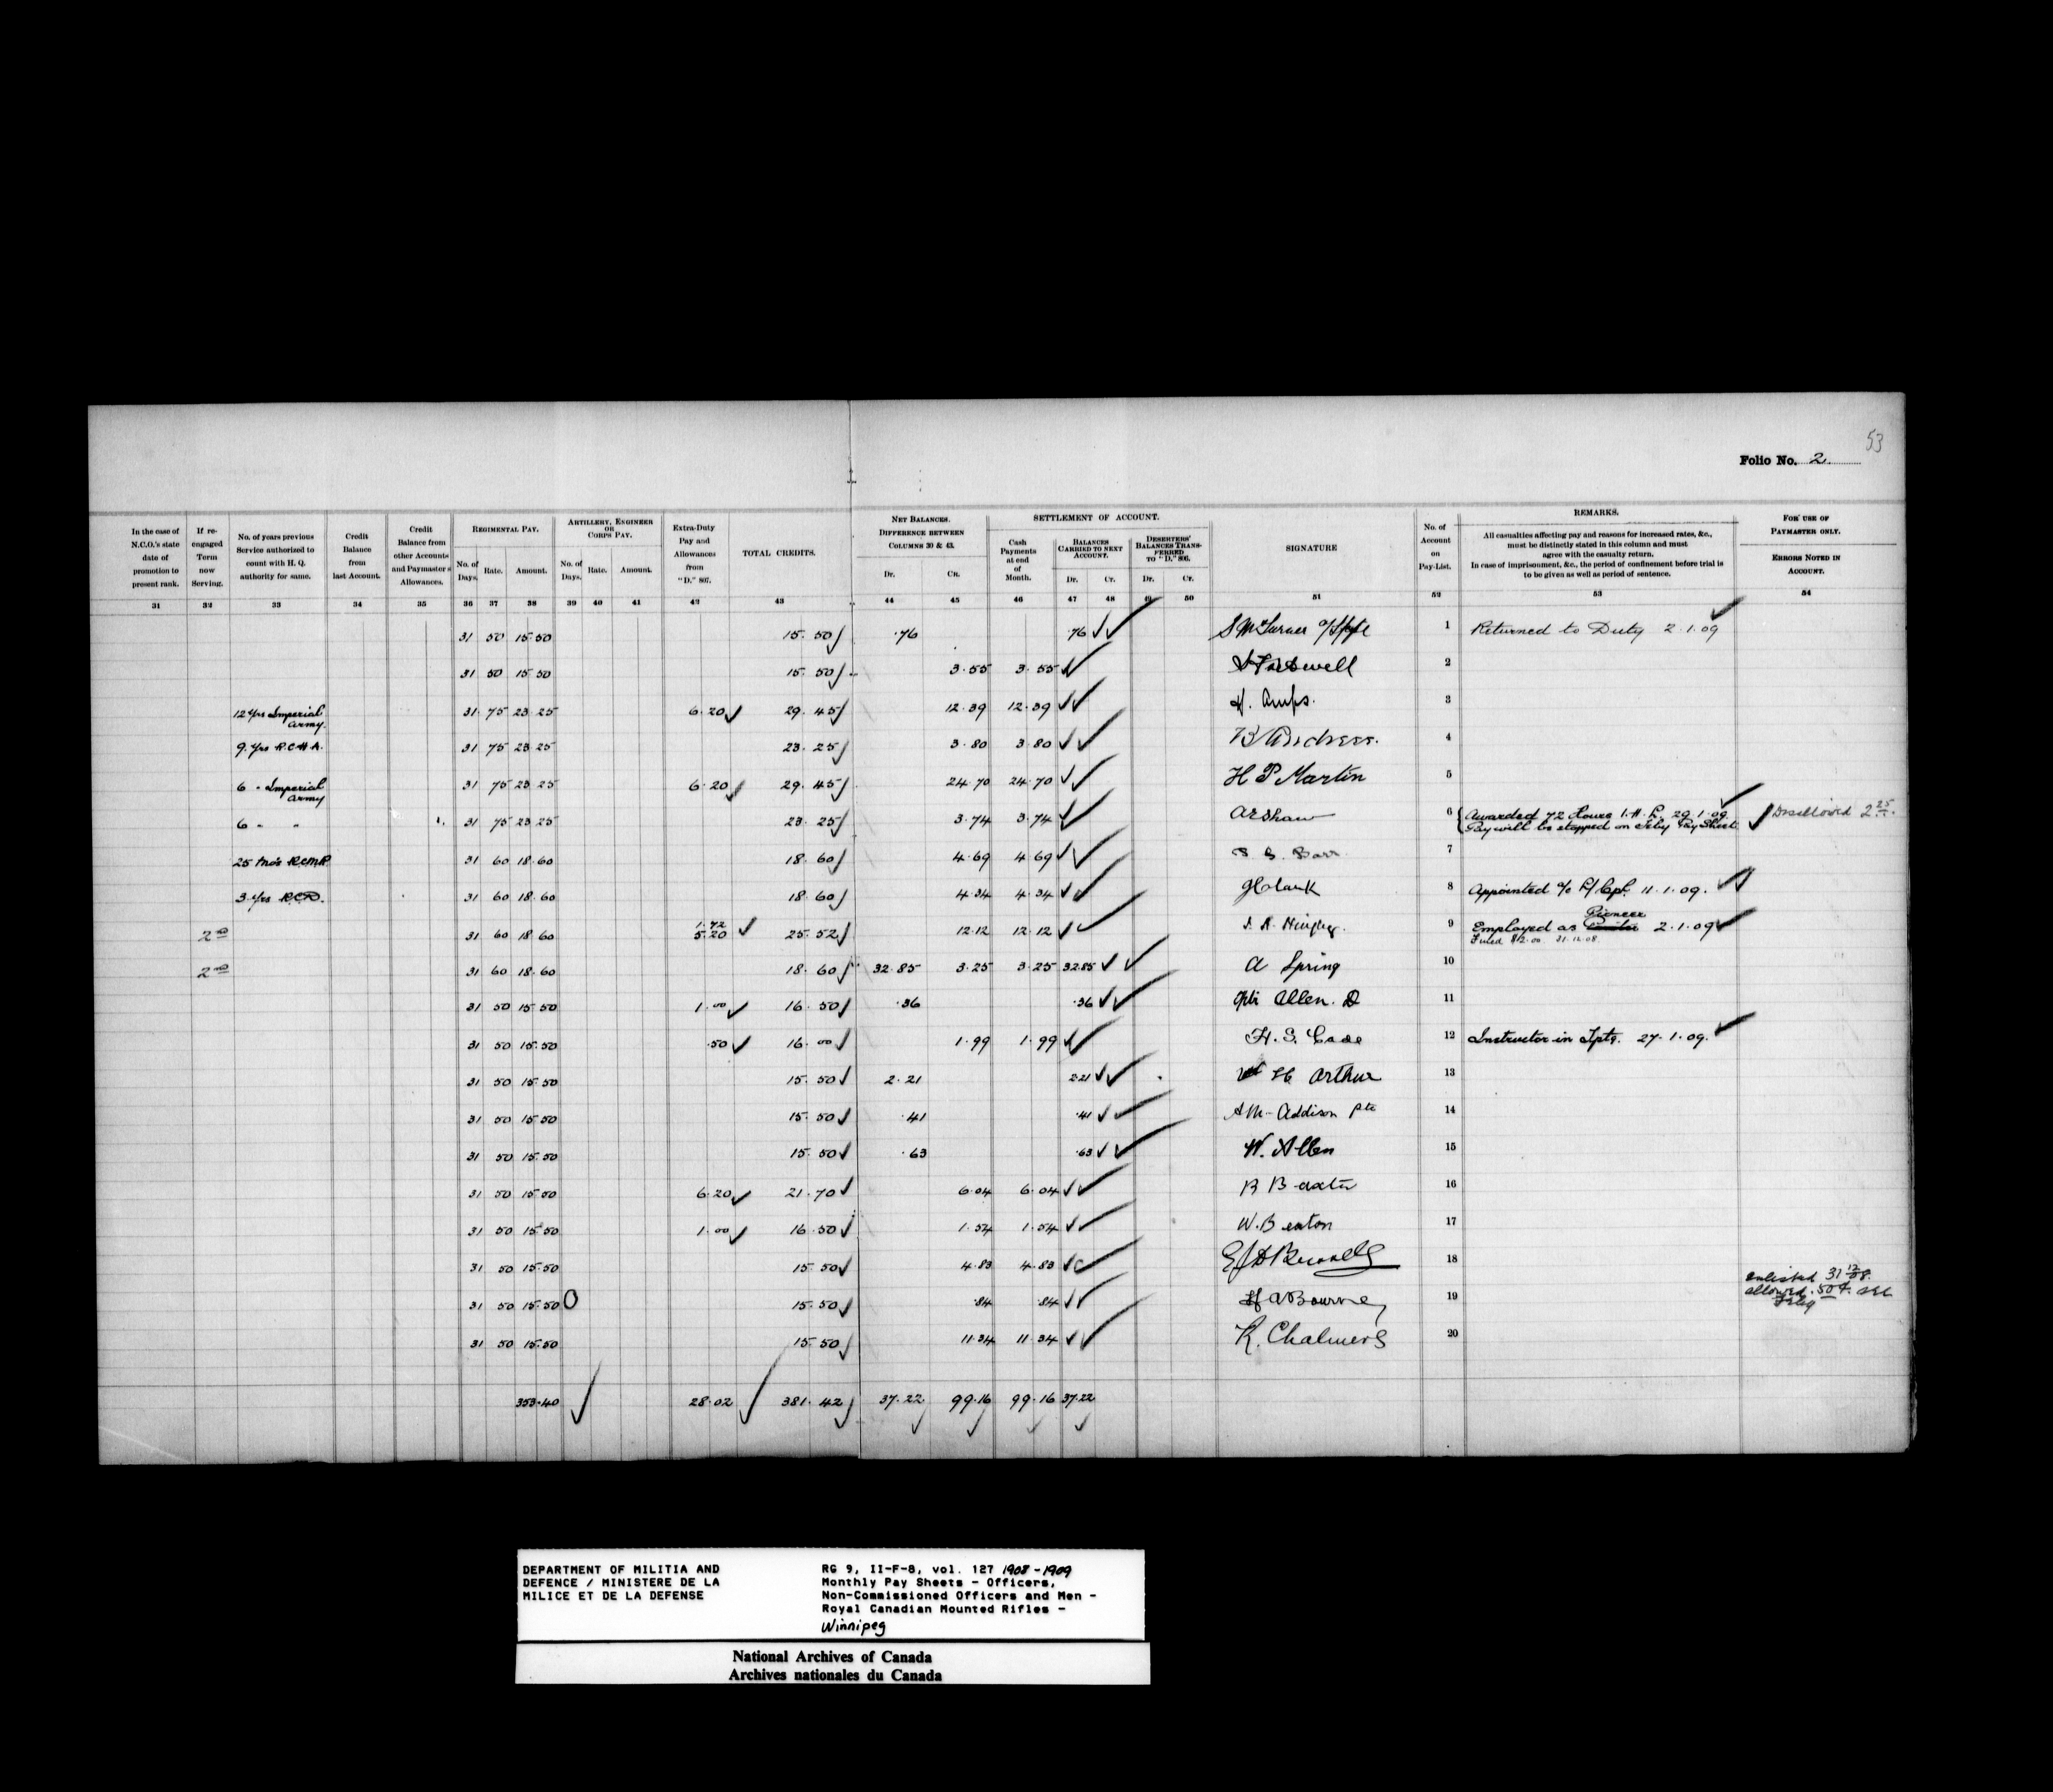 53
Folio No. 2
In the case of N.C.O.'s state date of promotion to present rank.
If re-engaged Term now Serving.
No. of years previous Service authorized to count with H. Q. authority for same.
Credit Balance from last Account.
Credit Balance from other Accounts and Paymaster's Allowances.
REGIMENTAL PAY.
No. of Days. Rate. Amount.
ARTILLERY, ENGINEER OR CORPS PAY.
No. of Days. Rate. Amount.
Extra-Duty Pay and Allowances from "D." 807.
TOTAL CREDITS.
NET BALANCES. DIFFERENCE BETWEEN COLUMNS 30 & 43.
Dr. Cr.
SETTLEMENT OF ACCOUNT.
Cash Payments at end of Month.
BALANCES CARRIED TO NEXT ACCOUNT.
Dr. Cr.
DESERTERS' BALANCES TRANSFERRED TO "D." 806.
Dr. Cr.
SIGNATURE
No. of Account on Pay-List.
REMARKS.
All casualties affecting pay and reasons for increased rates, &c., must be distinctly stated in this column and must agree with the casualty return.
In case of imprisonment, &c., the period of confinement before trial is to be given as well as period of sentence.
FOR USE OF PAYMASTER ONLY.
ERRORS NOTED IN ACCOUNT.
31 32 33 34 35 36 37 38 39 40 41 42 43 44 45 46 47 48 49 50 51 52 53 54
31 50 15.50 15.50 .76 .76 1 Returned to Duty 2.1.09
31 50 15.50 15.50 3.55 3.55 2
12 yrs Imperial Army. 31 75 23.25 6.20 29.45 12.39 12.39 H. Amps. 3
9 yrs R.C.H.A. 31 75 23.25 23.25 3.80 3.80 4
6 " Imperial Army 31 75 23.25 6.20 29.45 24.70 24.70 H P Martin 5
6 " " 31 75 23.25 23.25 3.74 3.74 A R Shaw 6 Awarded 72 Hours I.H.L. 29.1.09.
Pay will be stopped on Feby Pay Sheet Disallowed 2.25
25 mos R.C.M.R. 31 60 18.60 18.60 4.69 4.69 7
3 yrs R.C.D. 31 60 18.60 18.60 4.34 4.34 8 Appointed a/c L/Cpl. 11.1.09.
2nd 31 60 18.60 1.72 5.20 25.52 12.12 12.12 9 Employed as Pioneer 2.1.09
31.12.08
2nd 31 60 18.60 18.60 32.85 3.25 3.25 32.85 A Spring 10
31 50 15.50 1.00 16.50 .36 .36 Pte Allen. D 11
31 50 15.50 .50 16.00 1.99 1.99 12 Instructor in Tpts. 27.1.09.
31 50 15.50 15.50 2.21 2.21 H Arthur 13
31 50 15.50 15.50 .41 .41 A M Addison Pte 14
31 50 15.50 15.50 .63 .63 W. Allen 15
31 50 15.50 6.20 21.70 6.04 6.04 B Baxter 16
31 50 15.50 1.00 16.50 1.54 1.54 W. Beaton 17
31 50 15.50 15.50 4.83 4.83 18
31 50 15.50 15.50 .84 .84 H A Bourne 19 Enlisted 31 12/08.
allowed .50 Feby
31 50 15.50 15.50 11.34 11.34 R. Chalmers 20
353.40 28.02 381.42 37.22 99.16 99.16 37.22
DEPARTMENT OF MILITIA AND
DEFENCE / MINISTERE DE LA
MILICE ET DE LA DEFENSE
RG 9, II-F-8, vol. 127 1908-1909
Monthly Pay Sheets - Officers,
Non-Commissioned Officers and Men -
Royal Canadian Mounted Rifles -
Winnipeg
National Archives of Canada
Archives nationales du Canada